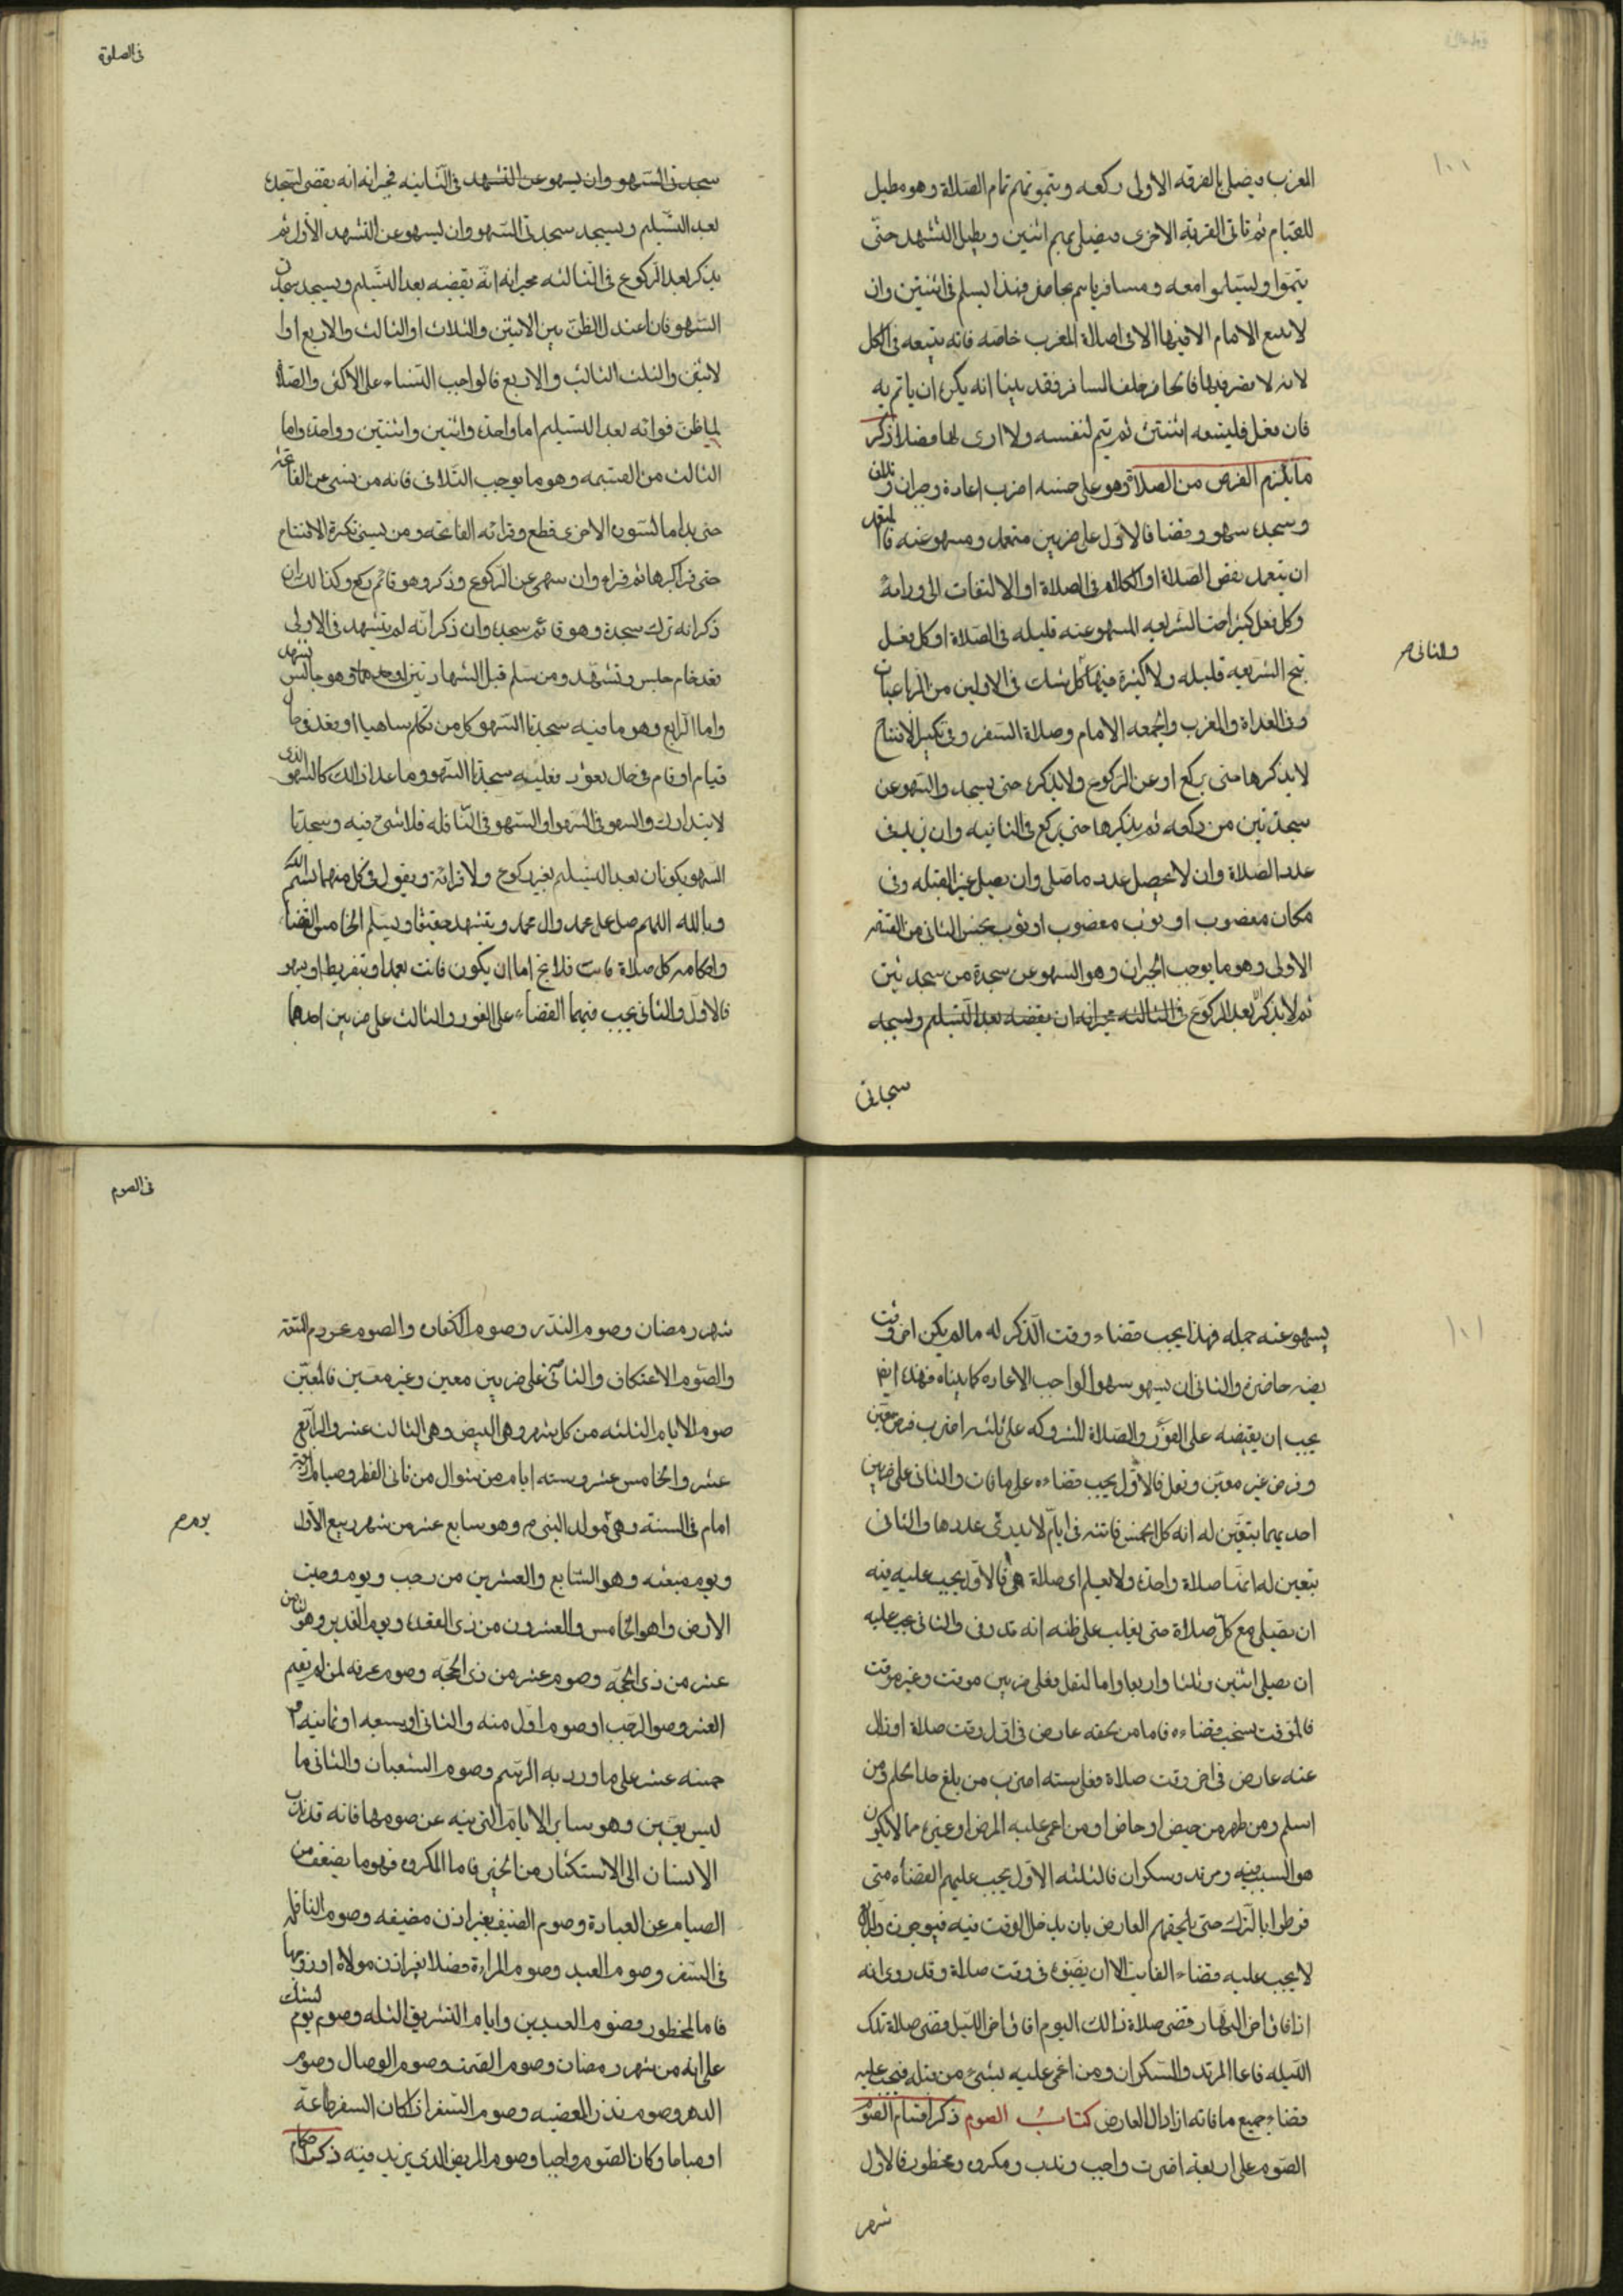 المغرب فيصلى بالفرقه الاولى ركعه ويتموا بهم تمام الصلاة وهو مطيل
للقيام ثم تاتى الفرقه الاخرى فيصلى بهم اثنين ويطيل التشهد حتى
يتموا وليسلموا معه ومسافر ياتم بحاضر فهذا يسلم فى اثنتين وان
لا يتبع الامام الا فيها الا فى اصالة المغرب خاصه فانه يتبعه فى الكل
لانه لا يقصر فيها فالحاضر خلف المسافر فقد بينا انه يكره ان ياتم به
فان فعل فليتبعه اثنتين ثم يتم لنفسه ولا ارى لها فضلا ذكر
ما يلزم الفرض من الصلاة وهو على خمسه اضرب اعادة وجبران وتلاف
وسجدة سهو وقضا فالاول على ضربين متعمد ومسهو عنه فالمتعمد
ان يتعمد نقض الصلاة او الكلام فى الصلاة او الالتفات الى ورائه
وكل فعل كثير الشريعه المسهو عنه قليله فى الصلاة او كل فعل
تبح الشريعه قليله ولا كثيره فيها كل شك فى الاولين من الرباعيات
والثانى
وفى الغداة والمغرب والجمعه الامام وصلاة السفر وفى تكبير الافتتاح
لا يذكرها حتى يركع او عن الركوع ولا يذكره حتى يسجد والسهو عن
سجدتين من ركعه ثم يذكرها حتى يركع فى الثانيه وان يزيد فى
عدد الصلاة وان لا يحصل عدد ما صلى وان يصلى غير القبله وفى
مكان مغصوب او بثوب مغصوب او بثوب نجس الثانى من القسمه
الاولى وهو ما يوجب الجبران وهو السهو عن سجدة من سجدتين
ثم لا يذكر بعد الركوع فى الثالثه جبرانه ان يقضه بعد التسليم ويسجد
سجدتى
فى الصلوة
سجدتى السهو وان يسهو عن التشهد فى الثانيه فجبرانه انه يقضى السجدة
بعد التسليم ويسجد سجدتى السهو وان يسهو عن التشهد الاول ثم
يذكر بعد الركوع فى الثالثه جبرانه انه يقضه بعد التسليم ويسجد سجدتى
السهو فان اعتدل الظن بين الاثنين والثلاث او الثالث والاربع او ا
لاثنين والثلث الثالث والاربع فالواجب البناء على الاكثر والصلاة
لما ظن فواته بعد التسليم اما واحدة واثنين واثنتين وواحدة واما
الثالث من القسمه وهو ما يوجب التلافى فانه من نسى عن الفاتحة
حتى بدا بالسورة الاخرى قطع وقرائه الفاتحه ومن نسى تكبيرة الافتتاح
حتى قرا كبرها ثم قراء وان سهى عن الركوع وذكر وهو قائم ركع وكذالك ان
ذكر انه ترك سجدة وهو قائم سجد وان ذكر انه لم يتشهد فى الاولى
وقد قام جلس وتشهد ومن سلم قبل الشهادتين او احدهما وهو جالس تشهد
واما الرابع وهو ما فيه سجدتا السهو كل من تكلم ساهيا او قعد فى حال
قيام او قام فى حال قعود فعليه سجدتا السهو وما عدا ذالك كالسهو الذى
لا يتدارك والسهو فى السهو او السهو فى النافله فلا شىء فيه وسجدتا
السهو يكونان بعد التسليم بغير ركوع ولا قرائة ويقول فى كل منهما بسم الله
وبالله اللهم صل على محمد وال محمد ويتشهد خفيفا ويسلم الخامس القضا
واحكامه كل صلاة فاتت فلا يخ اما ان يكون فاتت تعمدا وتفريط او يسهو
فالاول والثانى يجب فيهما القضاء على الفور والثالث على ضربين احدهما
يسهو عنه جمله فهذا يجب قضاءه وقت الذكر له مالم يكن اخر وقت
فريضه حاضره والثانى ان يسهو سهوا لواجب الاعاده كما بيناه فهذا ايضا
يجب ان يقضيه على الفور والصلاة المتروكه على ثلثه اضرب فرض معين
وفرض غير معين ونفل فالاول يجب قضاءه على ما فات والثانى على ضربين
احديهما يتعين له انه كل الخمس فاتته فى ايام لا يدرى عددها والثانى
يتعين له انها صلاة واحدة ولا يعلم اى صلاة هى فالاول يجب عليه فيه
ان يصلى مع كل صلاة حتى يغلب على ظنه انه قد وفى والثانى يجب عليه
ان يصلى اثنين وثلثا واربعا واما النفل فعلى ضربين موقت وغير موقت
فالموقت يستحب قضاءه فاما من لحقه عارض فى اول وقت صلاة او زال
عنه عارض فى اخر وقت صلاة فعلى سته اضرب من بلغ حد الحلم ومن
اسلم ومن طهر من حيض او حاض او من اغمى عليه المرض او غيره مما لا يكون
هو السبب فيه ومرتد وسكران فالثلثه الاول يجب عليهم القضاء متى
فرطوا بالترك حتى يلحقهم العارض بان يدخل الوقت فيه فيوجرن والرابع
لا يجب عليه قضاء الفايت الا ان يفيق فى وقت صلاة وقد روى انه
اذا فاق اخر النهار قضى صلاة ذالك اليوم افاق اخر الليل قضى صلاة تلك
الليله فاما المرتد والسكران ومن اغمى عليه بشىء من قبله فيجب عليه
قضاء جميع ما فاته اذا زال العارض كتاب الصوم ذكر اقسام الصوم
الصوم على اربعة اضرب واجب وندب ومكروه ومحظور فالاول
شهر
فى الصوم
شهر رمضان وصوم النذر وصوم الكفاره والصوم عن دم المتعة
والصوم الاعتكاف والثانى على ضربين معين وغير معين فالمعين
صوم الايام الثلثه من كل شهر وهى البيض وهى الثالث عشر والرابع
عشر والخامس عشر وسته ايام من شوال من ثانى الفطر وصيام اربعة
امام فى السنة وهى مولد النبى م وهو سابع عشر من شهر ربيع الاول
يوم
ويوم مبعثه وهو السابع والعشرين من رجب ويوم دحيت
الارض واهو الخامس والعشرون من ذى القعدة ويوم الغدير وهو ثامن
عشر من ذى الحجة وصوم عشر من ذى الحجه وصوم عرفه لمن لم يقم
العشر وصوم الرجب او صوم اول منه والثانى او سبعه او ثمانيه
خمسه عشر على ما ورد به الرسم وصوم الشعبان والثانى ما
ليس يعين وهو ساير الايام التى نهيه عن صومها فانه قد ندب
الانسان الى الاستكثار من الخير فاما المكروه فهو ما يضعف من
الصيام عن العبادة وصوم الضيف بغير اذن مضيفه وصوم النافله
فى السفر وصوم العبد وصوم المراءة فضلا بغير اذن مولاه او زوجها
فاما المحظور فصوم العيدين وايام التشريق الثله وصوم يوم لشك
على انه من شهر رمضان وصوم الصمت وصوم الوصال وصوم
الدهر وصوم نذر المعصيه وصوم السفر اذا كان السفر طاعة
او مباحا وكان الصوم واجبا وصوم المريض الذى يزيد فيه ذكر احكام